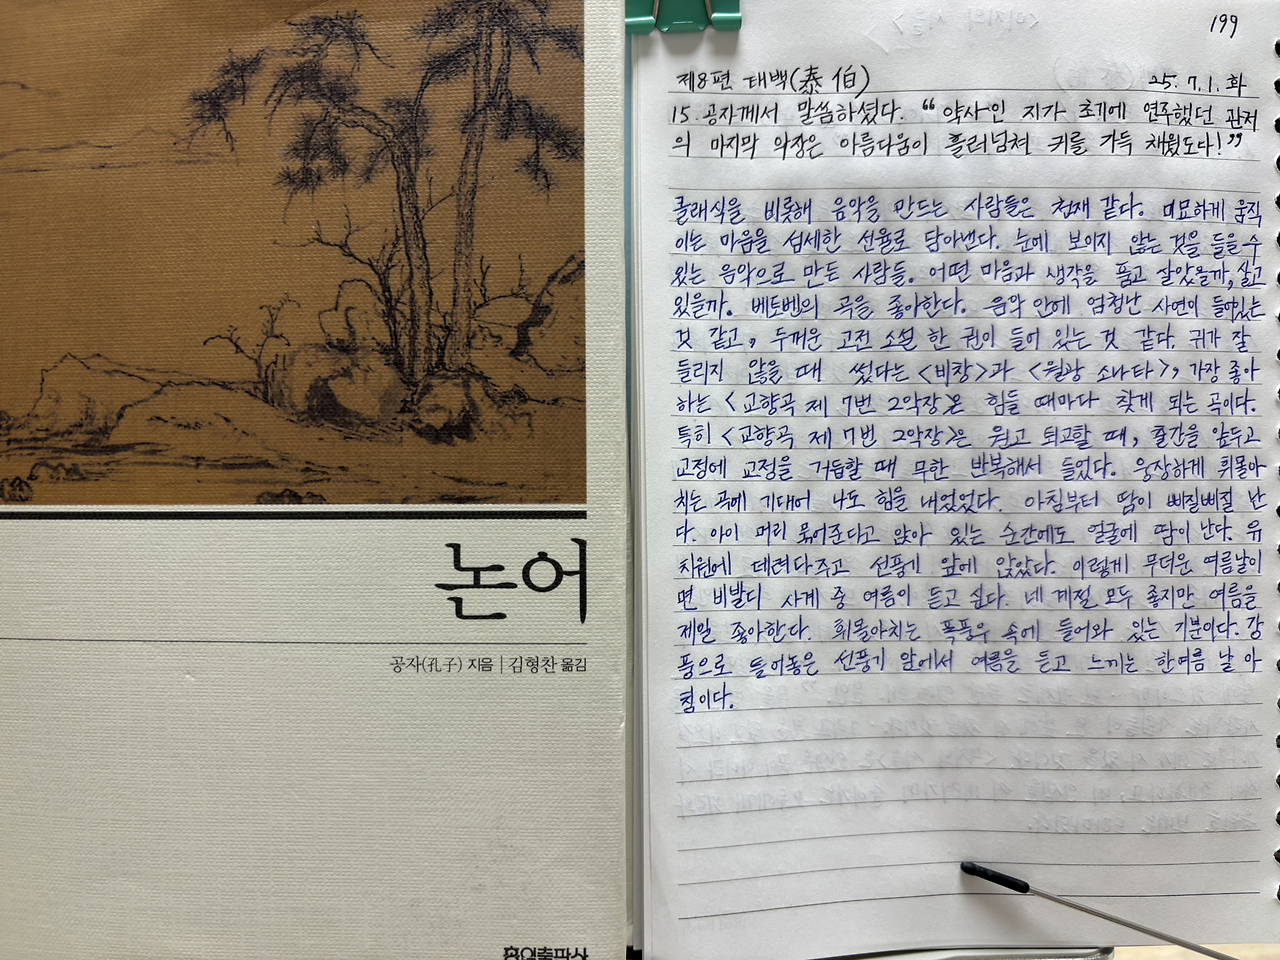 논어
공자(孔子) 지음 | 김형찬 옮김
홍익출판사
199
제8편 태백(泰伯) 25. 7. 1. 화
15. 공자께서 말씀하셨다. “악사인 지가 초기에 연주했던 관저
의 마지막 악장은 아름다움이 흘러넘쳐 귀를 가득 채웠도다!”
클래식을 비롯해 음악을 만드는 사람들은 천재 같다. 미묘하게 움직
이는 마음을 섬세한 선율로 담아낸다. 눈에 보이지 않는 것을 들을 수
있는 음악으로 만든 사람들. 어떤 마음과 생각을 품고 살았을까, 살고
있을까. 베토벤의 곡을 좋아한다. 음악 안에 엄청난 사연이 들어있는
것 같고, 두꺼운 고전 소설 한 권이 들어 있는 것 같다. 귀가 잘
들리지 않을 때 썼다는 <비창>과 <월광 소나타>, 가장 좋아
하는 <교향곡 제 7번 2악장>은 힘들 때마다 찾게 되는 곡이다.
특히 <교향곡 제 7번 2악장>은 원고 퇴고할 때, 출간을 앞두고
교정에 교정을 거듭할 때 무한 반복해서 들었다. 웅장하게 휘몰아
치는 곡에 기대어 나도 힘을 내었었다. 아침부터 땀이 삐질삐질 난
다. 아이 머리 묶어준다고 앉아 있는 순간에도 얼굴에 땀이 난다. 유
치원에 데려다주고 선풍기 앞에 앉았다. 이렇게 무더운 여름날이
면 비발디 사계 중 여름이 듣고 싶다. 네 계절 모두 좋지만 여름을
제일 좋아한다. 휘몰아치는 폭풍우 속에 들어와 있는 기분이다. 강
풍으로 틀어놓은 선풍기 앞에서 여름을 듣고 느끼는 한여름 날 아
침이다.